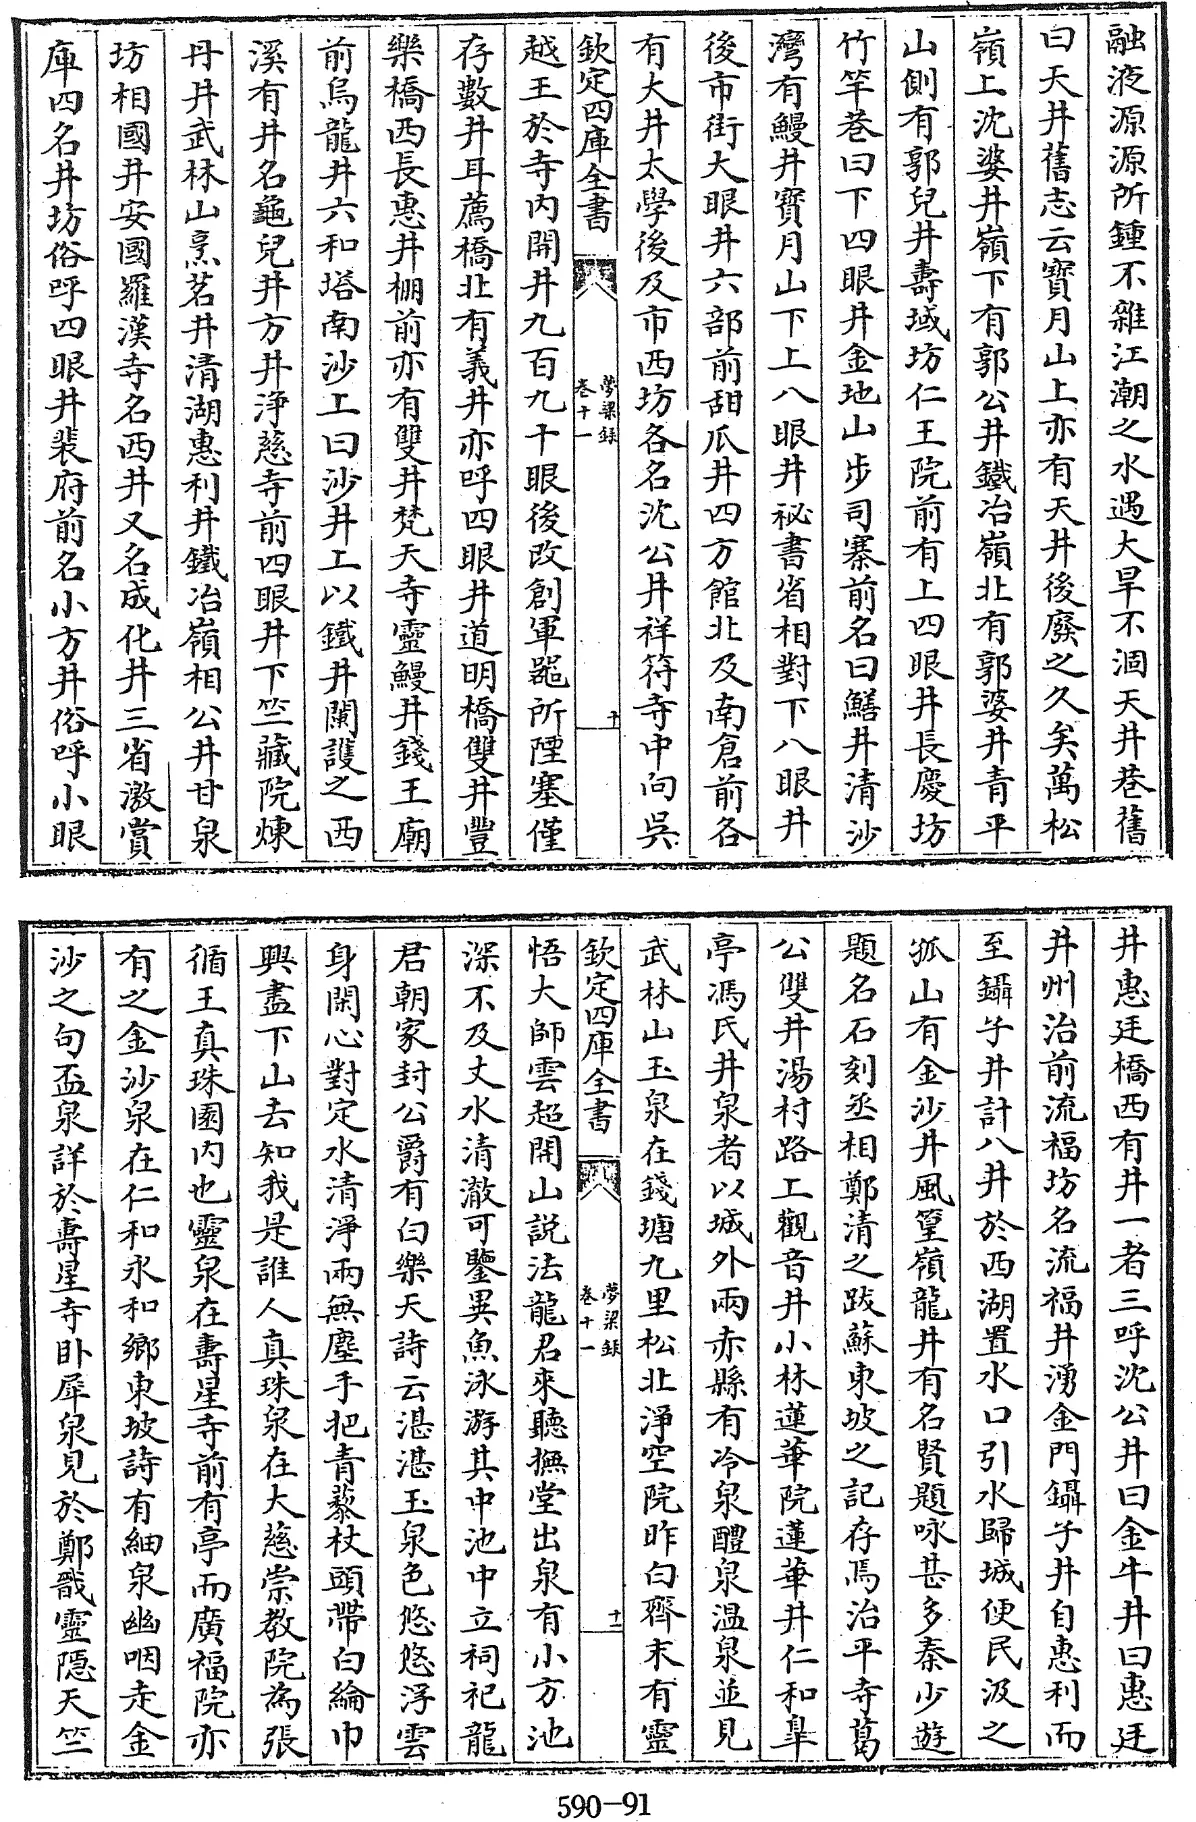 融液源源所鍾不雜江潮之水遇大旱不涸天井巷舊
曰天井舊志云寳月山上亦有天井後廢之久矣萬松
嶺上沈婆井嶺下有郭公井鐵冶嶺北有郭婆井青平
山側有郭兒井壽域坊仁王院前有上四眼井長慶坊
竹竿巷曰下四眼井金地山步司寨前名曰鱔井清沙
灣有鰻井寳月山下上八眼井祕書省相對下八眼井
後市街大眼井六部前甜瓜井四方館北及南倉前各
有大井太學後及市西坊各名沈公井祥符寺中向吳
欽定四庫全書
夢粱錄
卷十一
十
越王於寺内開井九百九十眼後改創軍噐所陻塞僅
存數井耳薦橋北有義井亦呼四眼井道明橋雙井豐
樂橋西長惠井棚前亦有雙井梵天寺靈鰻井錢王廟
前烏龍井六和塔南沙上曰沙井上以鐵井闌護之西
溪有井名龜兒井方井淨慈寺前四眼井下竺藏院煉
丹井武林山烹茗井清湖惠利井鐵冶嶺相公井甘泉
坊相國井安國羅漢寺名西井又名成化井三省激賞
庫四名井坊俗呼四眼井裴府前名小方井俗呼小眼
井惠廷橋西有井一者三呼沈公井曰金牛井曰惠廷
井州治前流福坊名流福井湧金門鑷子井自惠利而
至鑷子井計八井於西湖置水口引水歸城便民汲之
孤山有金沙井風篁嶺龍井有名賢題咏甚多秦少遊
題名石刻丞相鄭清之跋蘇東坡之記存焉治平寺葛
公雙井湯村路上觀音井小林蓮華院蓮華井仁和臯
亭馮氏井泉者以城外兩赤縣有冷泉醴泉温泉並見
武林山玉泉在錢塘九里松北淨空院昨白齊末有靈
欽定四庫全書
夢粱錄
卷十一
十一
悟大師雲超開山説法龍君來聽撫堂出泉有小方池
深不及丈水清澈可鑒異魚泳游其中池中立祠祀龍
君朝家封公爵有白樂天詩云湛湛玉泉色悠悠浮雲
身閑心對定水清淨兩無塵手把青藜杖頭帶白綸巾
興盡下山去知我是誰人真珠泉在大慈崇教院為張
循王真珠園内也靈泉在壽星寺前有亭而廣福院亦
有之金沙泉在仁和永和鄉東坡詩有細泉幽咽走金
沙之句盃泉詳於壽星寺卧犀泉見於鄭戩靈隱天竺
590-91